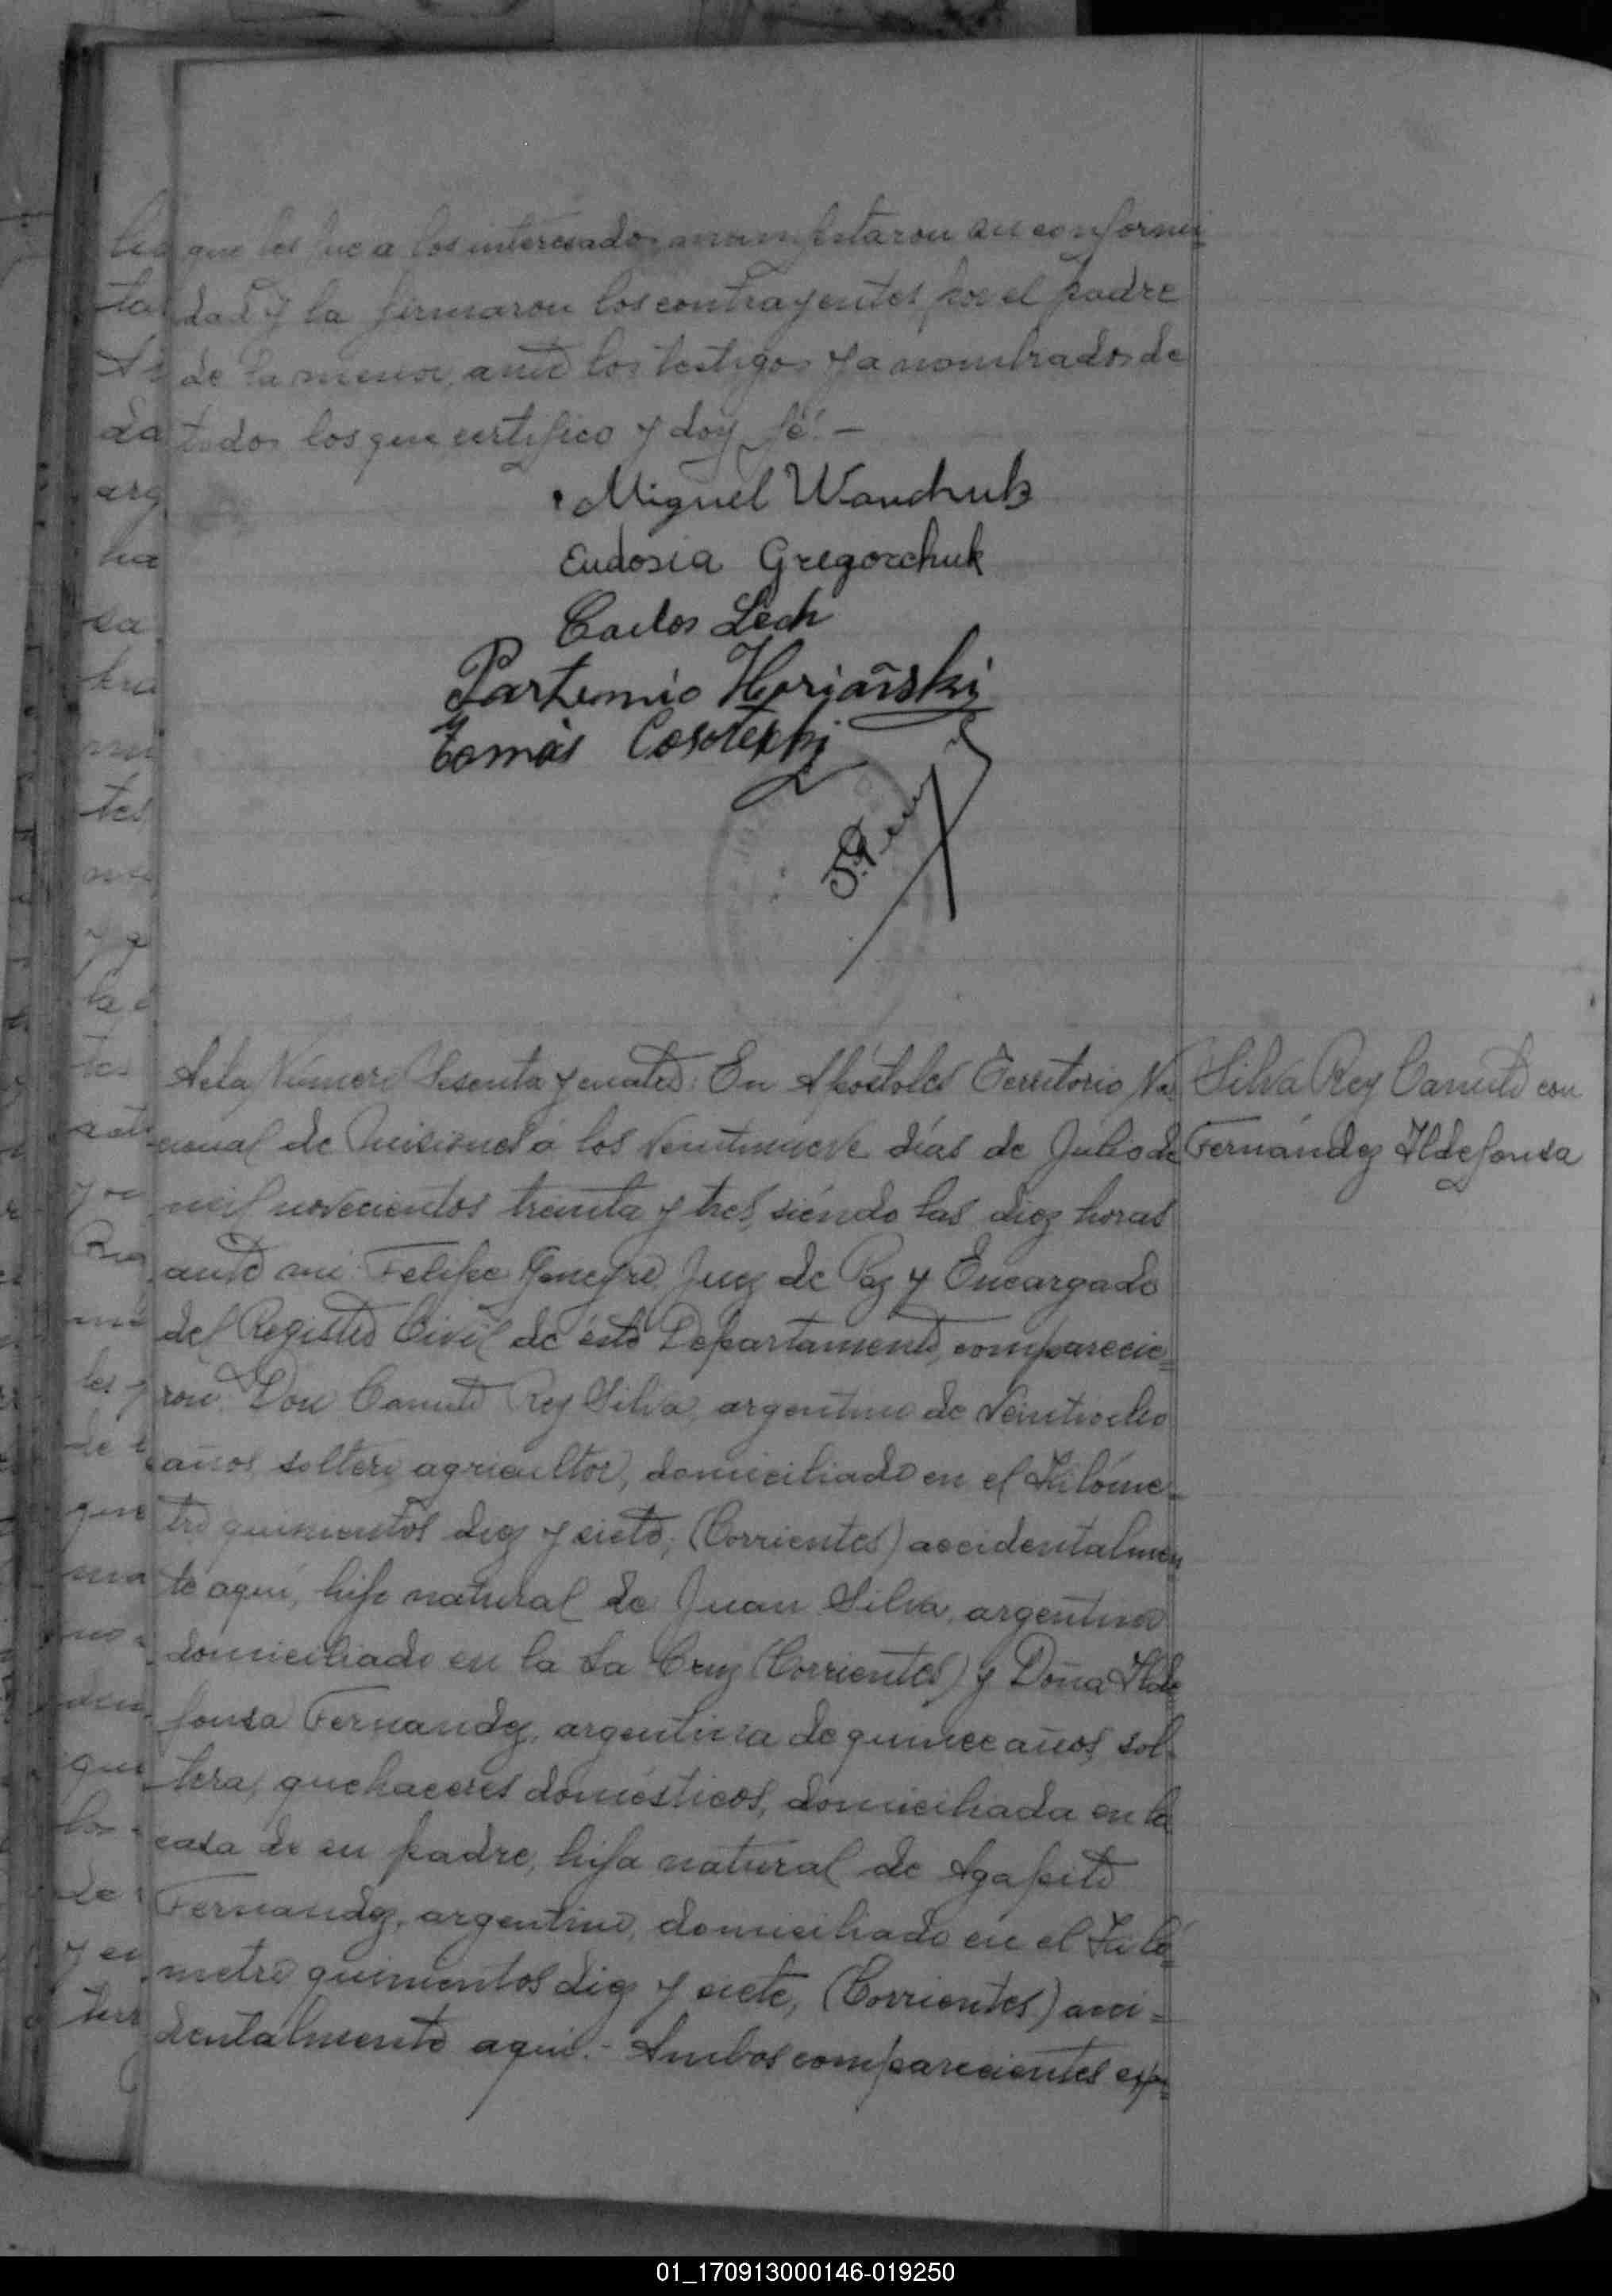 que les fue a los interesados manifestaron su conformi-
dad y la firmaron los contrayentes, por el padre
de la menor, ante los testigos ya nombrados de
todos los que certifico y doy fé. -
Miguel Wanchuk
Eudosia Gregorchuk
Carlos Lech
Partemio Horiañski
Tomás
Acta Número Sesenta y cuatro: En Apóstoles Territorio Na-
cional de Misiones á los veintinueve días de Julio de
mil novecientos treinta y tres, siéndo las diez horas
ante mi Felipe Juez de Paz y Encargado
del Registro Civil de éste Departamento, comparecie=
ron: Don Canuto Rey Silva, argentino de veintiocho
años, soltero, agricultor, domiciliado en el Kilóme-
tro quinientos diez y siete, (Corrientes) accidentalmen
te aquí, hijo natural de Juan Silva, argentino
domiciliado en la La Cruz (Corrientes) y Doña Ilde
fonsa Fernandez, argentina de quince años, sol-
tera, quehaceres domésticos, domiciliada en la
casa de su padre, hija natural de Agapito
Fernandez, argentino, domiciliado en el Kiló-
metro quinientos diez y siete, (Corrientes) acci=
dentalmente aquí.- Ambos comparecientes exp=
Silva Rey Canuto con
Fernández Ildefonsa
01_170913000146-019250